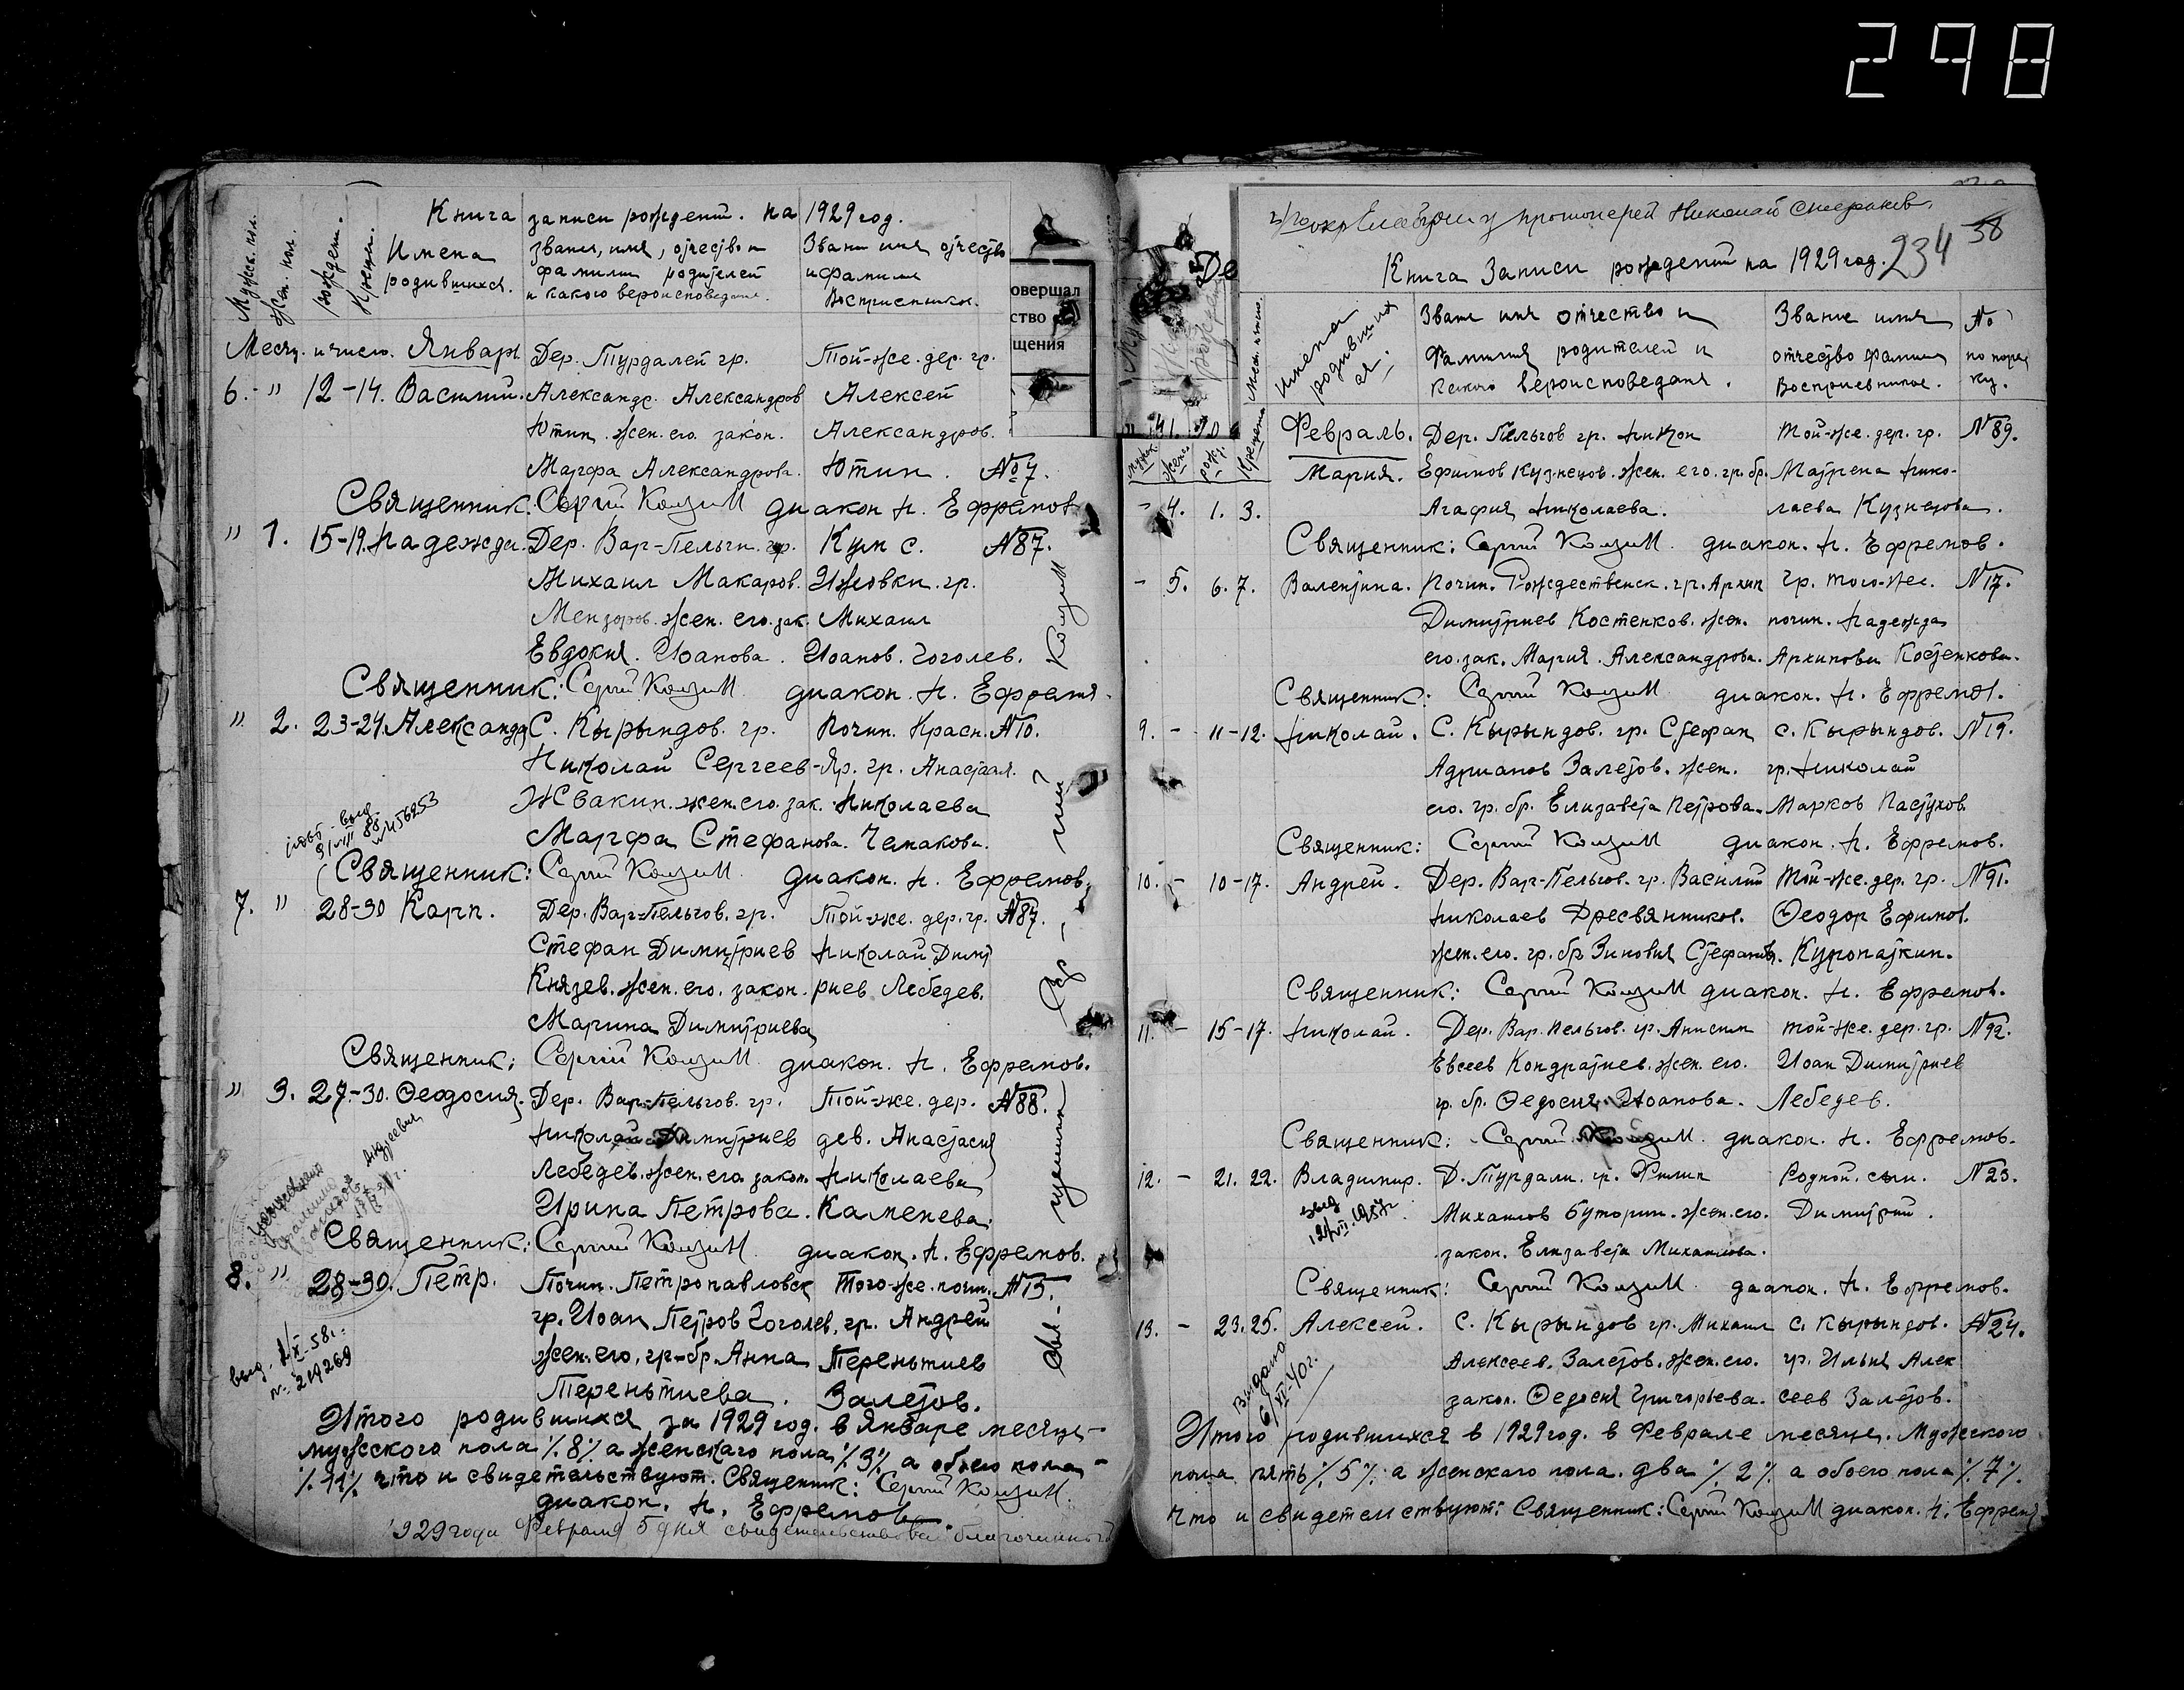 298
Книга записи рожден. на 1929 год.
Мужск. пол.
Жен. пол.
рожден.
Крещен.
Имена родившихся.
Звания, имя, отчество и фамилии родителей и какого вероисповедания.
Звани имя отчество и фамили Восприемников.
овершал
ство
щения
Месяц. и число. Январь Дер. Турдалей гр. Той-же. дер. гр.
6. - " 12-14. Василий. Александр. Александров Алексей
Ютин. жен. его. закон. Александров.
Марфа Александрова. Ютин. №7.
Священник: Сергий диакон Н. Ефремов
" 1. 15-19. Надежда. Дер. Вар-Пельги. гр. Кум с. №87.
Михаил Макаров. Ижовки. гр.
жен. его. зак. Михаил
Евдокия. Иоанова. Иоанов. Гоголев.
Священник: Сергий диакон. Н. Ефремов
" 2. 23-24. Александр С. Кырындов. гр. Почин. Красн. №10.
Николай Сергеев -Яр. гр. Анастаси.
Жвакин. жен. его. зак. Николаева
Марфа Стефанова. Чепакова.
№456253
Священник: Сергий диакон. Н. Ефремов.
7. " 28-30 Карп. Дер. Вар-Пельгов. гр. Той-же. дер. гр. №87.
Стефан Димитриев Николай Димит
Князев. жен. его. закон. риев Лебедев.
Марина Димитриева
Священник: Сергий диакон. Н. Ефремов.
" 3. 27-30. Феодосия. Дер. Вар-Пельгов. гр. Той-же. дер. №88.
Николай Димитриев дев. Анастасия
Лебедев. жен. его. закон. Николаева
Ирина Петрова. Каменева.
Священник: Сергий диакон. Н. Ефремов.
8. " 28-30. Петр. Почин. Петропавловск Того-же. почин. №15.
гр. Иоан Петров Гоголев. гр. Андрей
жен. его. гр-бр. Анна Перентиев
Терентиева. Залетов.
выд. 2/X-58г.
№ 219269
Итого родившихся за 1929 год. в Январе месяце-
мужского пола ٪8٪ а женскаго пола ٪3٪ а обоего пола -
٪11٪ что и свидетельствуют. Священник: Сергий
диакон. Н. Ефремов.
1929 года Февраля 5 дня свидетельствовал благочинный
протоиерей Николай
234
58
Книга Записи рождений на 1929 год.
Имена родивших ся.
Звание имя отчество и Фамилия родителей и какого вероисповедания.
Звание имя отчество фамили Восприемников.
№ по поряд ку.
Мужск Женс рожд. Крещен
Февраль. Дер. Пельгов гр. Никон Той-же. дер. гр. №89.
Мария. Ефимов Кузнецов. жен. его. гр. бр. Матрена Нико-
- 4. 1. 3. Агафия Николаева. лаева Кузнецова.
Священник: Сергий диакон. Н. Ефремов.
- 5. 6. 7. Валентина. Почин. Рождественск. гр. Архип Гр. того-же. №17.
Димитриев Костенков. жен. почин. Надежда
его. зак. Мария. Александрова. Архипова Костенкова.
Священник: Сергий диакон. Н. Ефремов.
9. - 11-12. Николай. С. Кырындов. гр. Стефан с. Кырындов. №19.
Адрианов Залетов. жен. гр. Николай
его. гр. бр. Елизавета Петрова. Марков Пастухов.
Священник: Сергий диакон. Н. Ефремов.
10. - 10-17. Андрей. Дер. Вар-Пельгов. гр. Василий Той-же. дер. гр. №91.
Николаев Дресвянников. Феодор Ефимов.
жен. его. гр. бр. Зиновия Стефанов. Куропаткин.
Священник: Сергий диакон. Н. Ефремов.
11. - 15-17. Николай. Дер. Вар. Пельгов. гр. Анисим той-же. дер. гр. №92.
Евсеев Кондратиев. жен. его. Иоан Димитриев
гр. бр. Федосия. Иоанова. Лебедев.
Священник: Сергий диакон. Н. Ефремов.
12. - 21. 22. Владимир. Д. Турдали. гр. Филип Родной. сын. №23.
Михаилов Буторин. жен. его. Димитрий.
закон. Елизавета Михаилова.
Священник: Сергий диакон. Н. Ефремов.
13. - 23. 25. Алексей. С. Кырындов гр. Михаил с. Кырындов. №24.
Алексеев. Залетов. жен. его. гр. Илья Алек
закон. Федосия Григорьева. сеев Залетов.
Выдано
6/VI-40г.
Итого родившихся в 1929 год. в Феврале месяце. Мужского
пола пять ٪5٪ а женскаго пола. два ٪2٪ а обоего пола ٪7٪
Что и свидетелствуют: Священник: Сергий диакон. Н. Ефремов